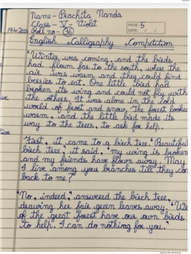 Name - Prachita Nanda
Class - V - Violet
Roll no - 36
PAGE 5
DATE
English Calligraphy Competition
Winter was coming, and the birds
had flown far to the south, where the
air was warm and they could find
berries to eat. One little bird had
broken its wing and could not fly with
the others. It was alone in the cold
world of frost and snow. The forest looked
warm, and the little bird made its
way to the trees, to ask for help.
First, it came to a birch tree. "Beautiful
birch tree", it said, "my wing is broken
and my friends have flown away. May
I live among your branches till they come
back to me?"
"No, indeed", answered the birch tree,
drawing her fair green leaves away. "We
of the great forest have our own birds
to help. I can do nothing for you."